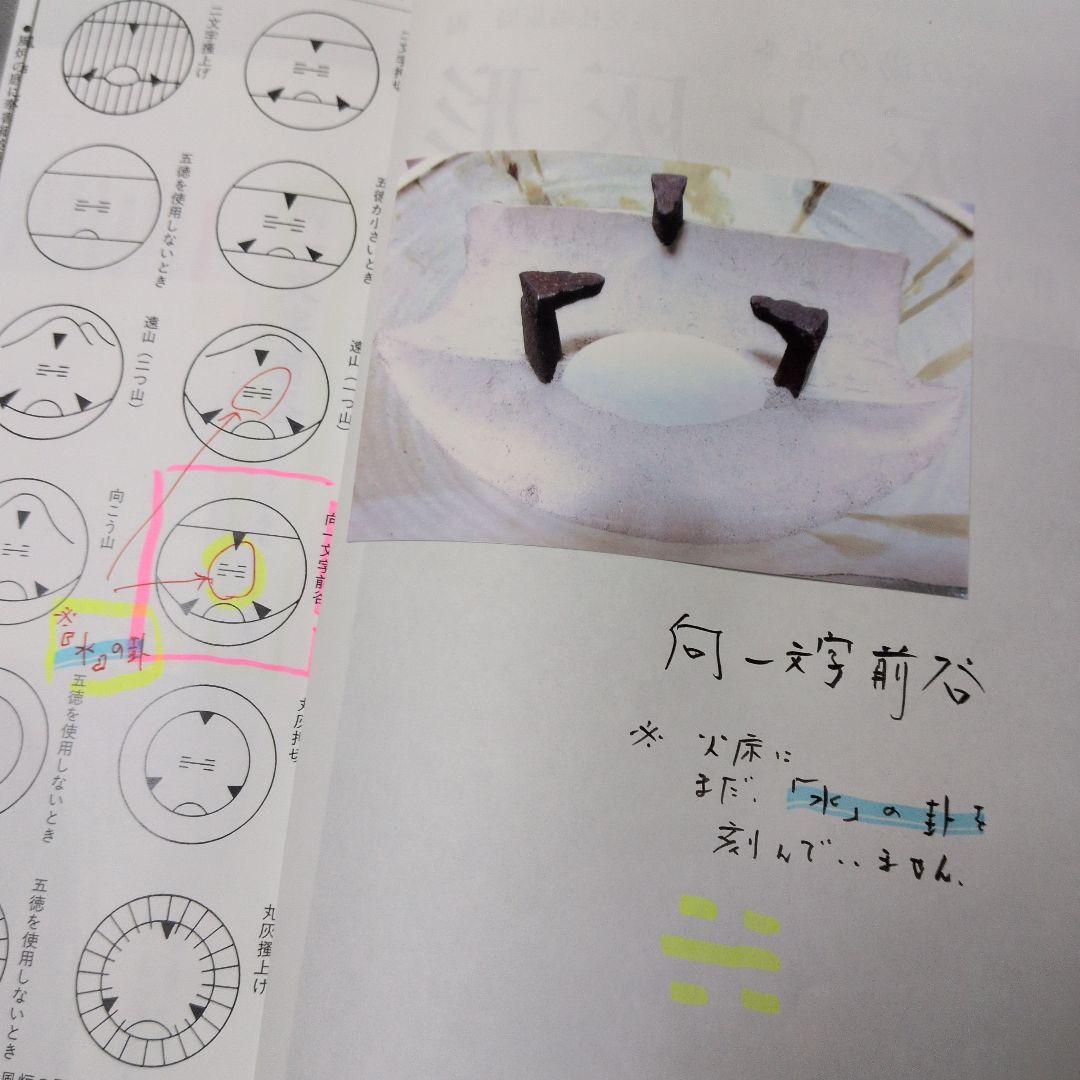 二文字掻上げ
五徳を使用しないとき
五徳が小さいとき
遠山(二つ山)
遠山(一つ山)
向こう山
向一文字前谷
※「水」の卦
五徳を使用しないとき
丸灰押切
五徳を使用しないとき
丸灰掻上げ
灰形
向一文字前谷
※ 火床に
まだ、「水」の卦を
刻んでいません。